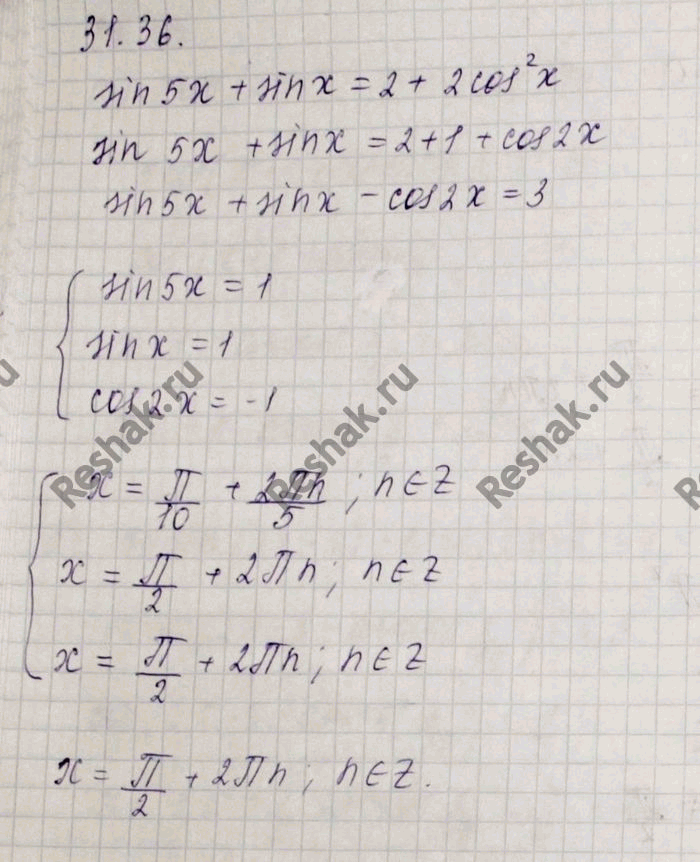 31.36.
sin 5x + sin x = 2 + 2cos²x
sin 5x + sin x = 2 + 1 + cos 2x
sin 5x + sin x - cos 2x = 3
sin 5x = 1
sin x = 1
cos 2x = -1
x = П/10 + 2Пn/5 ; n ∈ Z
x = П/2 + 2Пn ; n ∈ Z
x = П/2 + 2Пn ; n ∈ Z
x = П/2 + 2Пn ; n ∈ Z.
Reshak.ru
Reshak.ru
Reshak.ru